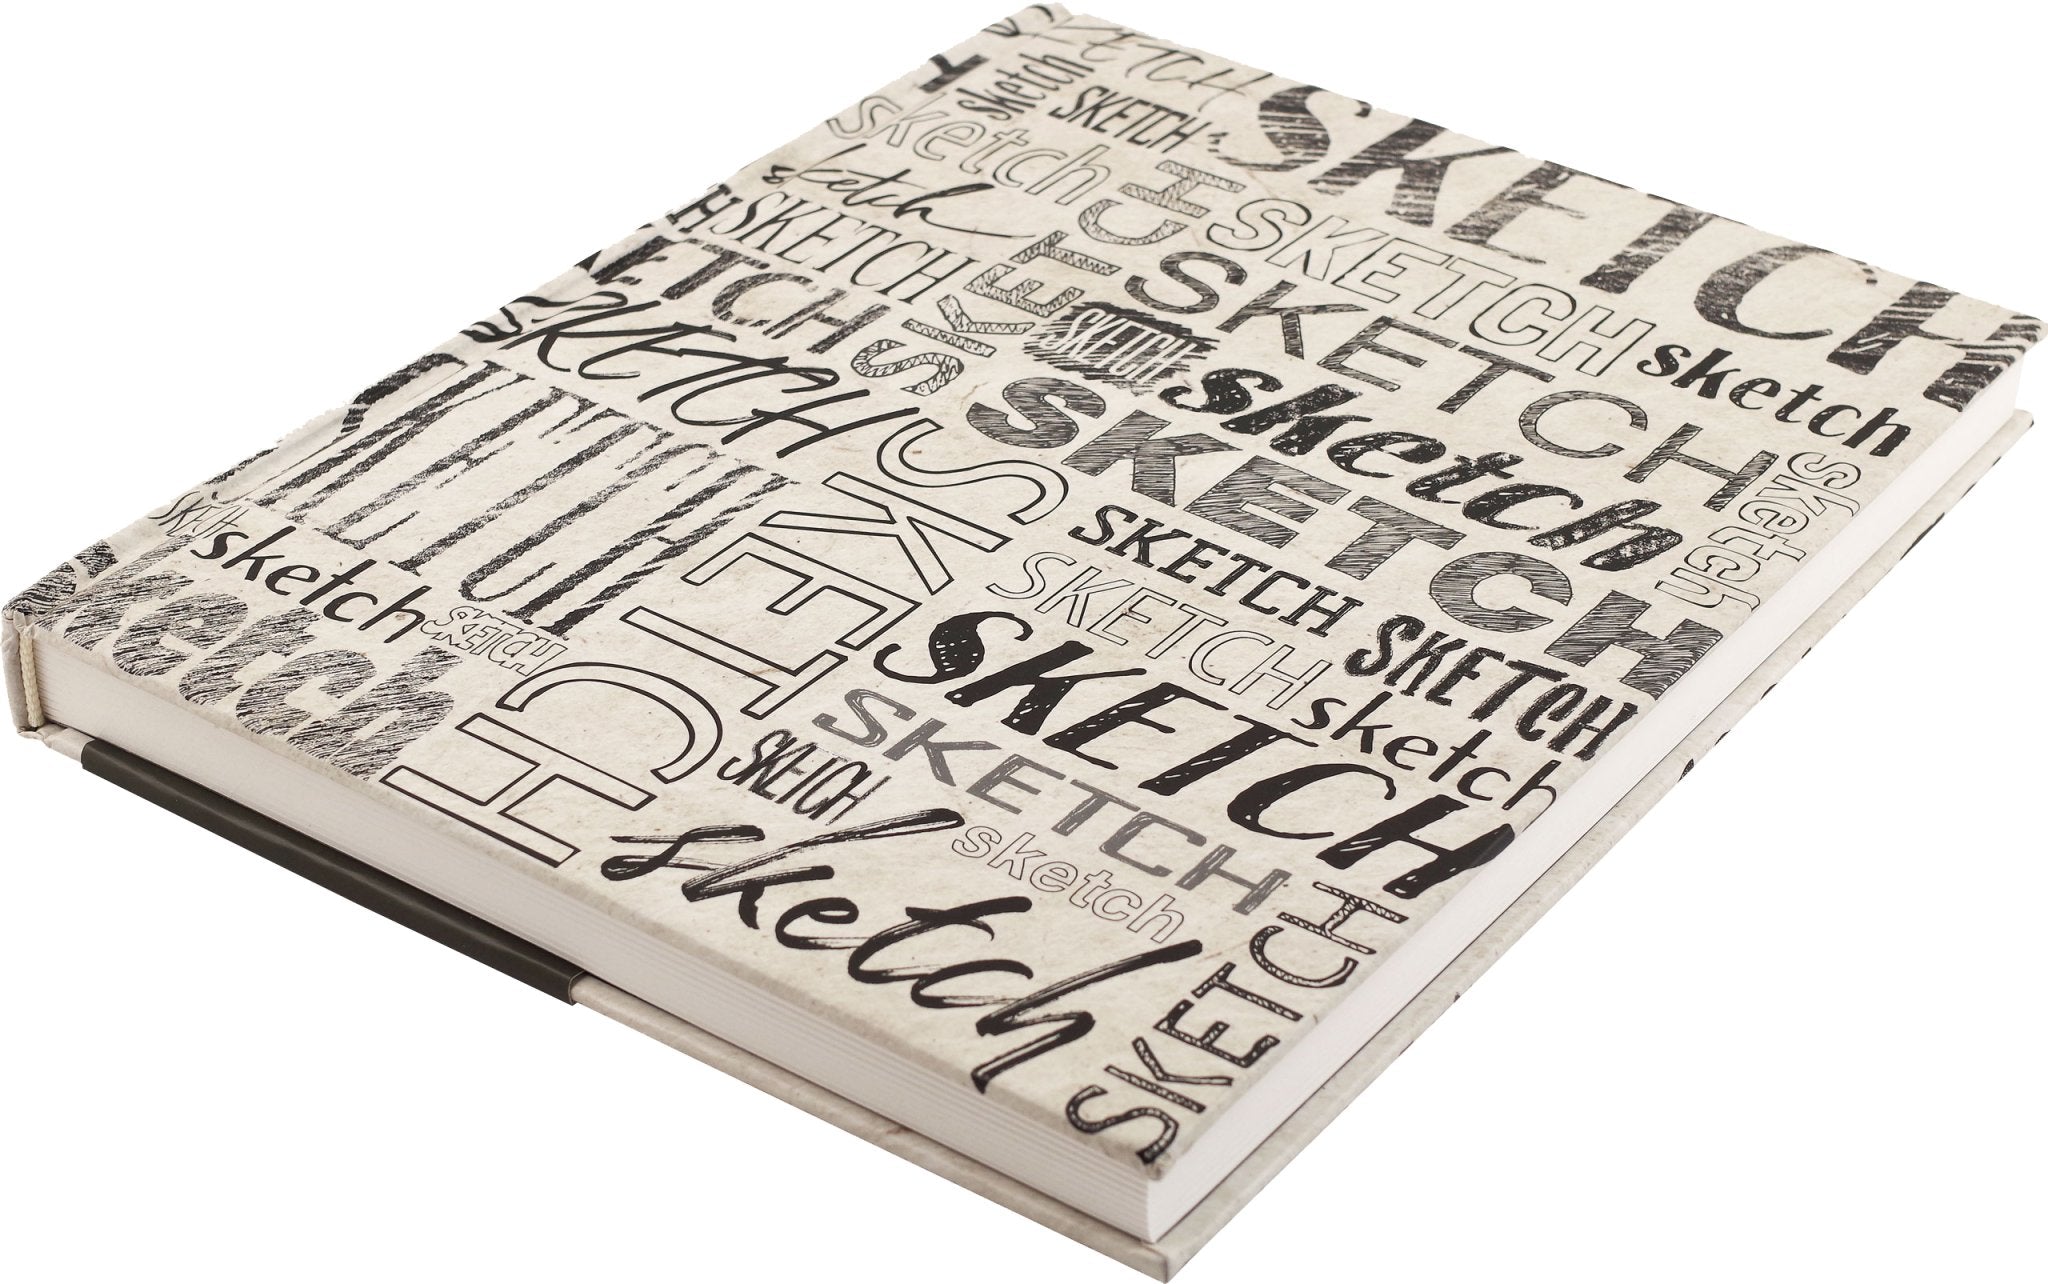 SKETCH
sketch
SKETCH
SKETCH
sketch
SKETCH
SKETCH
sketch
sketch
SKETCH
SKETCH
SKETCH
sketch
SKETCH
SKETCH
sketch
sketch
SKETCH
SKETCH
SKETCH
SKETCH
SKETCH
SKETCH
SKETCH
sketch
sketch
SKETCH
SKETCH
sketch
SKETCH
SKETCH
sketch
sketch
SKETCH